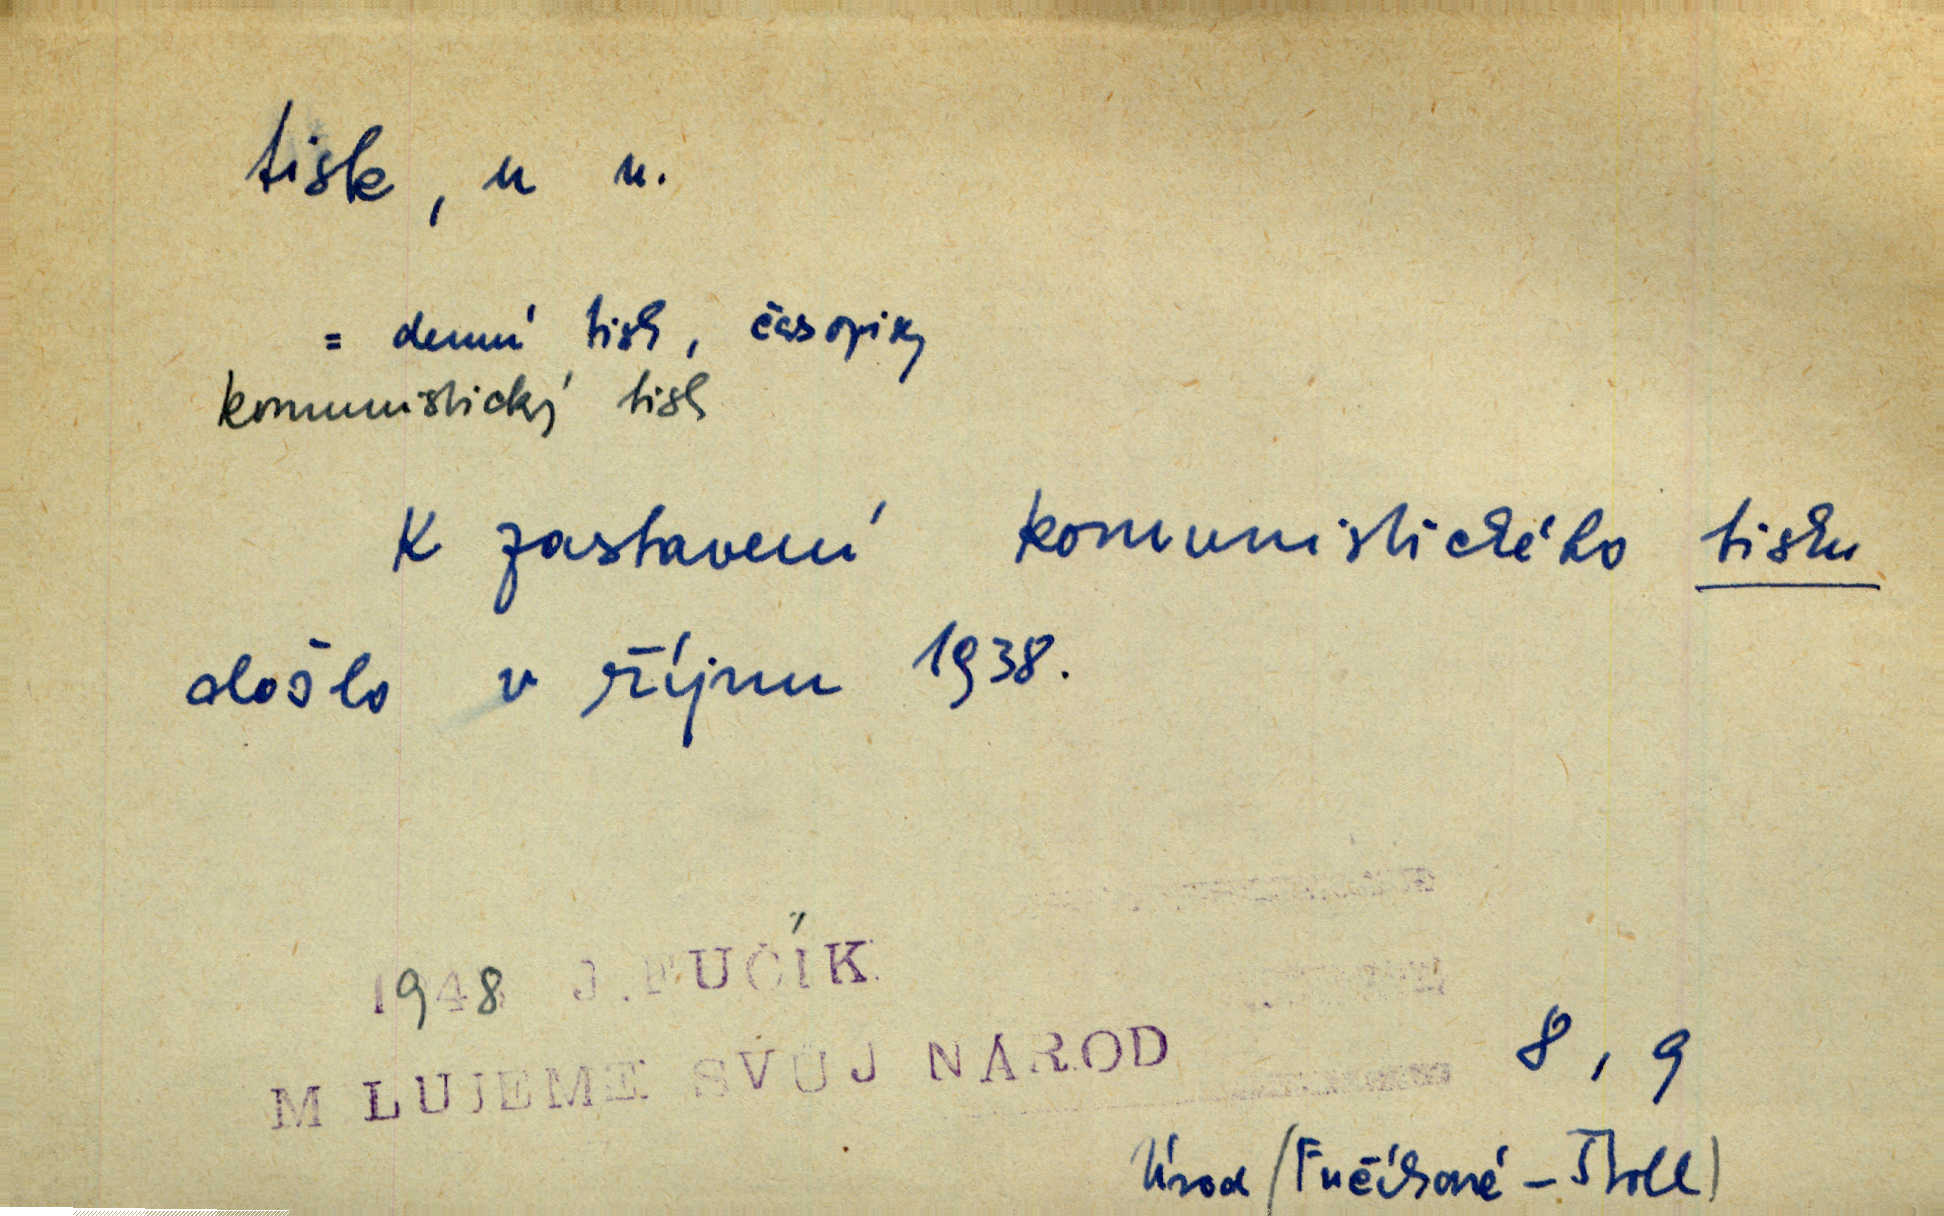 tisk, u u.
= denní tisk, časopisy
komunistický tisk
K zastavení komunistického tisku
došlo v říjnu 1938.
1948 J. FUČÍK
MILUJEME SVŮJ NÁROD
8, 9
Úvod (Fučíkové – Štoll)